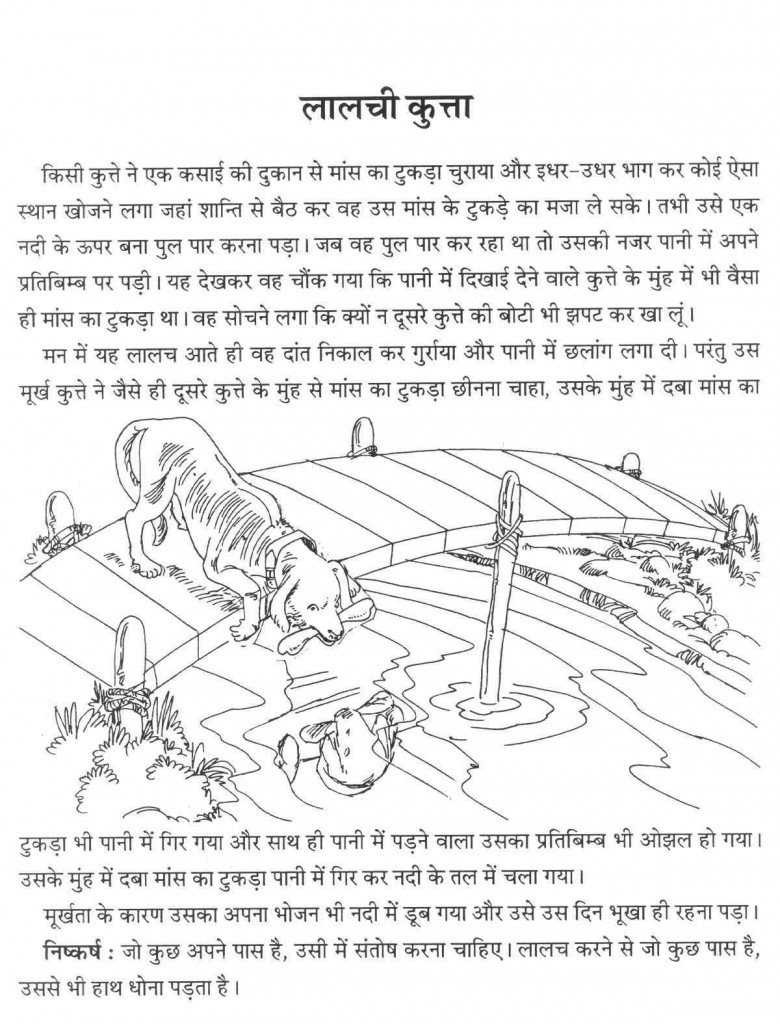 लालची कुत्ता
किसी कुत्ते ने एक कसाई की दुकान से मांस का टुकड़ा चुराया और इधर-उधर भाग कर कोई ऐसा
स्थान खोजने लगा जहां शान्ति से बैठ कर वह उस मांस के टुकड़े का मजा ले सके। तभी उसे एक
नदी के ऊपर बना पुल पार करना पड़ा। जब वह पुल पार कर रहा था तो उसकी नजर पानी में अपने
प्रतिबिम्ब पर पड़ी। यह देखकर वह चौंक गया कि पानी में दिखाई देने वाले कुत्ते के मुंह में भी वैसा
ही मांस का टुकड़ा था। वह सोचने लगा कि क्यों न दूसरे कुत्ते की बोटी भी झपट कर खा लूं।
मन में यह लालच आते ही वह दांत निकाल कर गुर्राया और पानी में छलांग लगा दी। परंतु उस
मूर्ख कुत्ते ने जैसे ही दूसरे कुत्ते के मुंह से मांस का टुकड़ा छीनना चाहा, उसके मुंह में दबा मांस का
टुकड़ा भी पानी में गिर गया और साथ ही पानी में पड़ने वाला उसका प्रतिबिम्ब भी ओझल हो गया।
उसके मुंह में दबा मांस का टुकड़ा पानी में गिर कर नदी के तल में चला गया।
मूर्खता के कारण उसका अपना भोजन भी नदी में डूब गया और उसे उस दिन भूखा ही रहना पड़ा।
निष्कर्ष : जो कुछ अपने पास है, उसी में संतोष करना चाहिए। लालच करने से जो कुछ पास है,
उससे भी हाथ धोना पड़ता है।